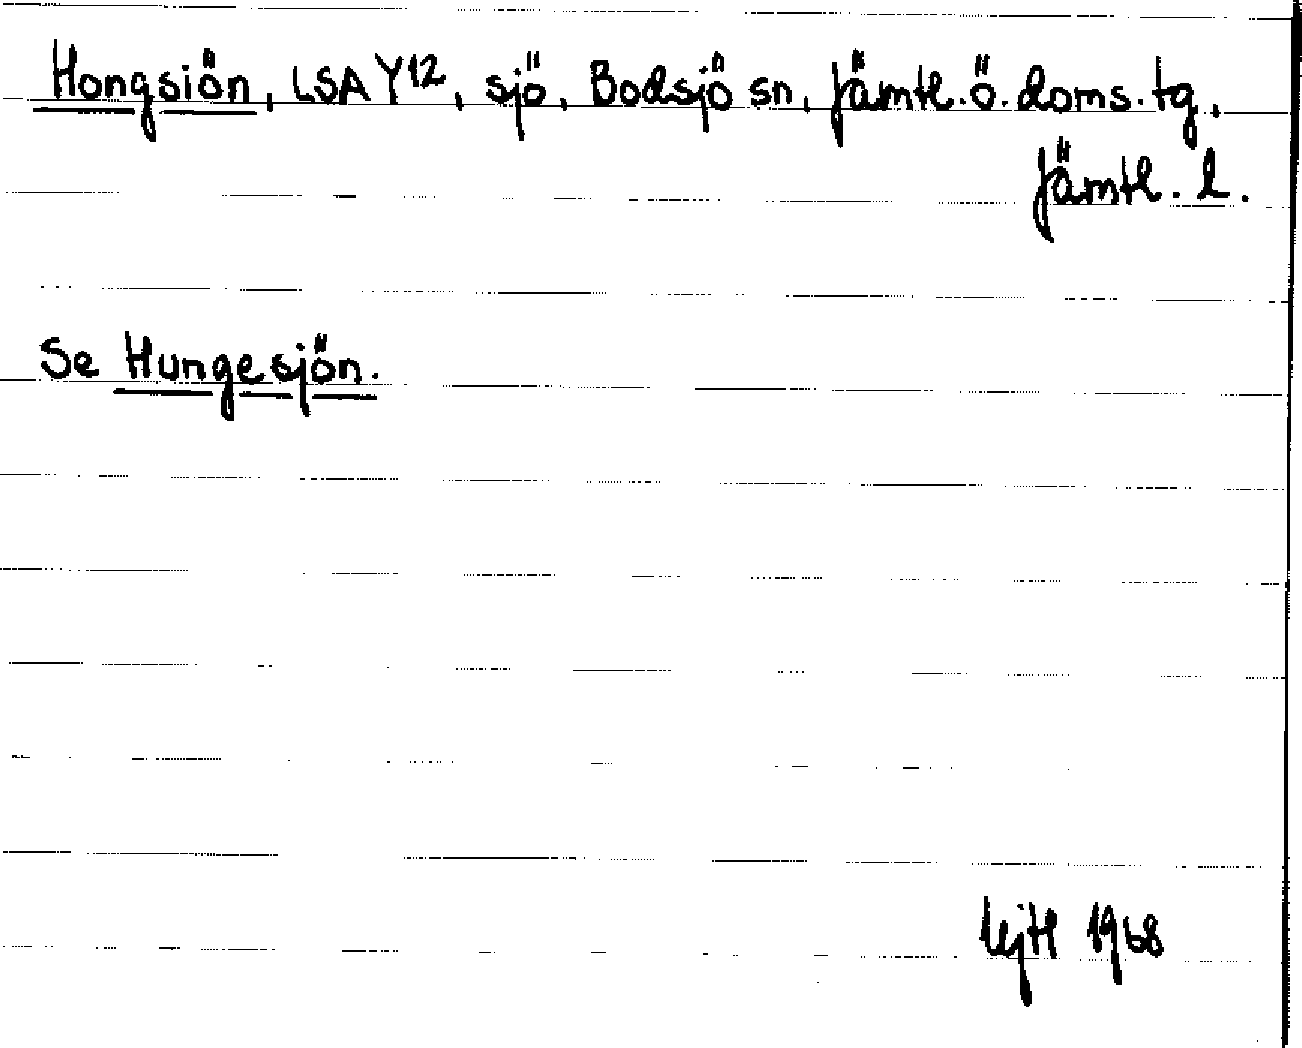 Hongsiön, LSA Y12, sjö, Bodsjö sn, Jämtl. ö. doms. tg,
Jämtl. l.
Se Hungesjön.
1968